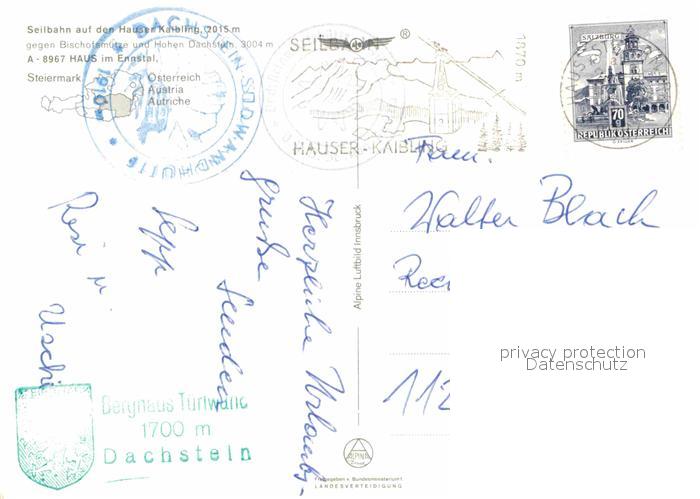 Seilbahn auf den Hauser Kaibling, 2015 m
gegen Bischofsmütze und Hohen Dachstein, 3004 m
A - 8967 HAUS im Ennstal,
Steiermark
Österreich
Austria
Autriche
* DACHSTEIN-SÜDWANDHÜTTE *
1910 m
SEILBAHN ®
1870 m
HAUSER - KAIBLING
SALZBURG
70
g
REPUBLIK ÖSTERREICH
Herzliche Urlaubs-
grüße senden
Sepp
Resi u.
Uschi
Berghaus Türlwand
1700 m
Dachstein
Alpine Luftbild Innsbruck
ALPINE
Freigegeben v. Bundesministerium f.
LANDESVERTEIDIGUNG
Fam.
Walter Blach
112
privacy protection
Datenschutz